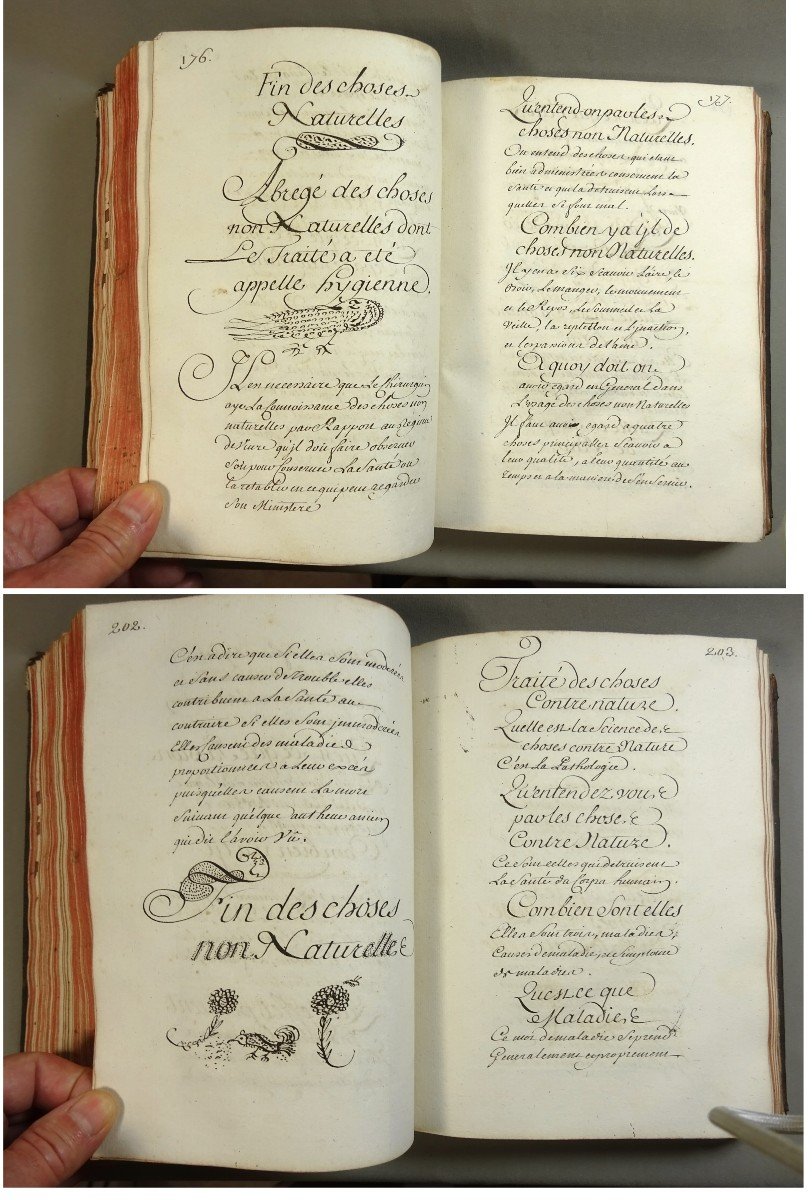 176.
Fin des choses
Naturelles
Abregé des choses
non Naturelles dont
Le Traité a eté
appelle hygienne.
Il est necessaire que Le Chirurgien
aye La Connoissance des choses non
naturelles par Rapport au regime
de vivre qu'il doit faire observer
soit pour Conserver La Santé ou
la retablir en ce qui peut regarder
Son Ministere
177.
Qu'entend on par les
choses non Naturelles.
On entend des choses qui etant
bien administrées conservent la
santé et qui la detruisent lors
quelles se font mal.
Combien y a'ijl de
choses non Naturelles.
Jl y en a Six Scavoir L'aire, le
boire, Le manger, le mouvement
et le Repos, Le Sommeil et La
Veille, la repletion et L'jnaction,
et les passions de l'ame.
A quoy doit on
avoir egard en General dans
L'usage des choses non Naturelles
Jl faut avoir egard a quatre
choses principalles Scavoir a
leur qualité, a leur quantité au
temps et a la maniere de s'en Servir.
202.
C'est a dire que Si elles Sont moderées
et Sans causer de trouble elles
contribuent a La Santé au
contraire Si elles Sont jmmoderées
Elles Causent des maladies
proportionnées a Leur excés
puisqu'elles causent La mort
Suivant quelque autheur ancien
qui dit l'avoir Vû.
Fin des choses
non Naturelles
203.
Traité des choses
Contre nature.
Quelle est La Science des
choses contre Nature
C'est La Pathologie.
Qu'entendez vous
par les choses
Contre Nature.
Ce Sont celles qui detruisent
La Santé du Corps humain.
Combien Sont elles
Elles Sont trois, maladies,
Causes de maladies, et Symptome
de maladies.
Qu'est ce que
Maladies
Ce mot de maladie Se prend
Generalement et proprement